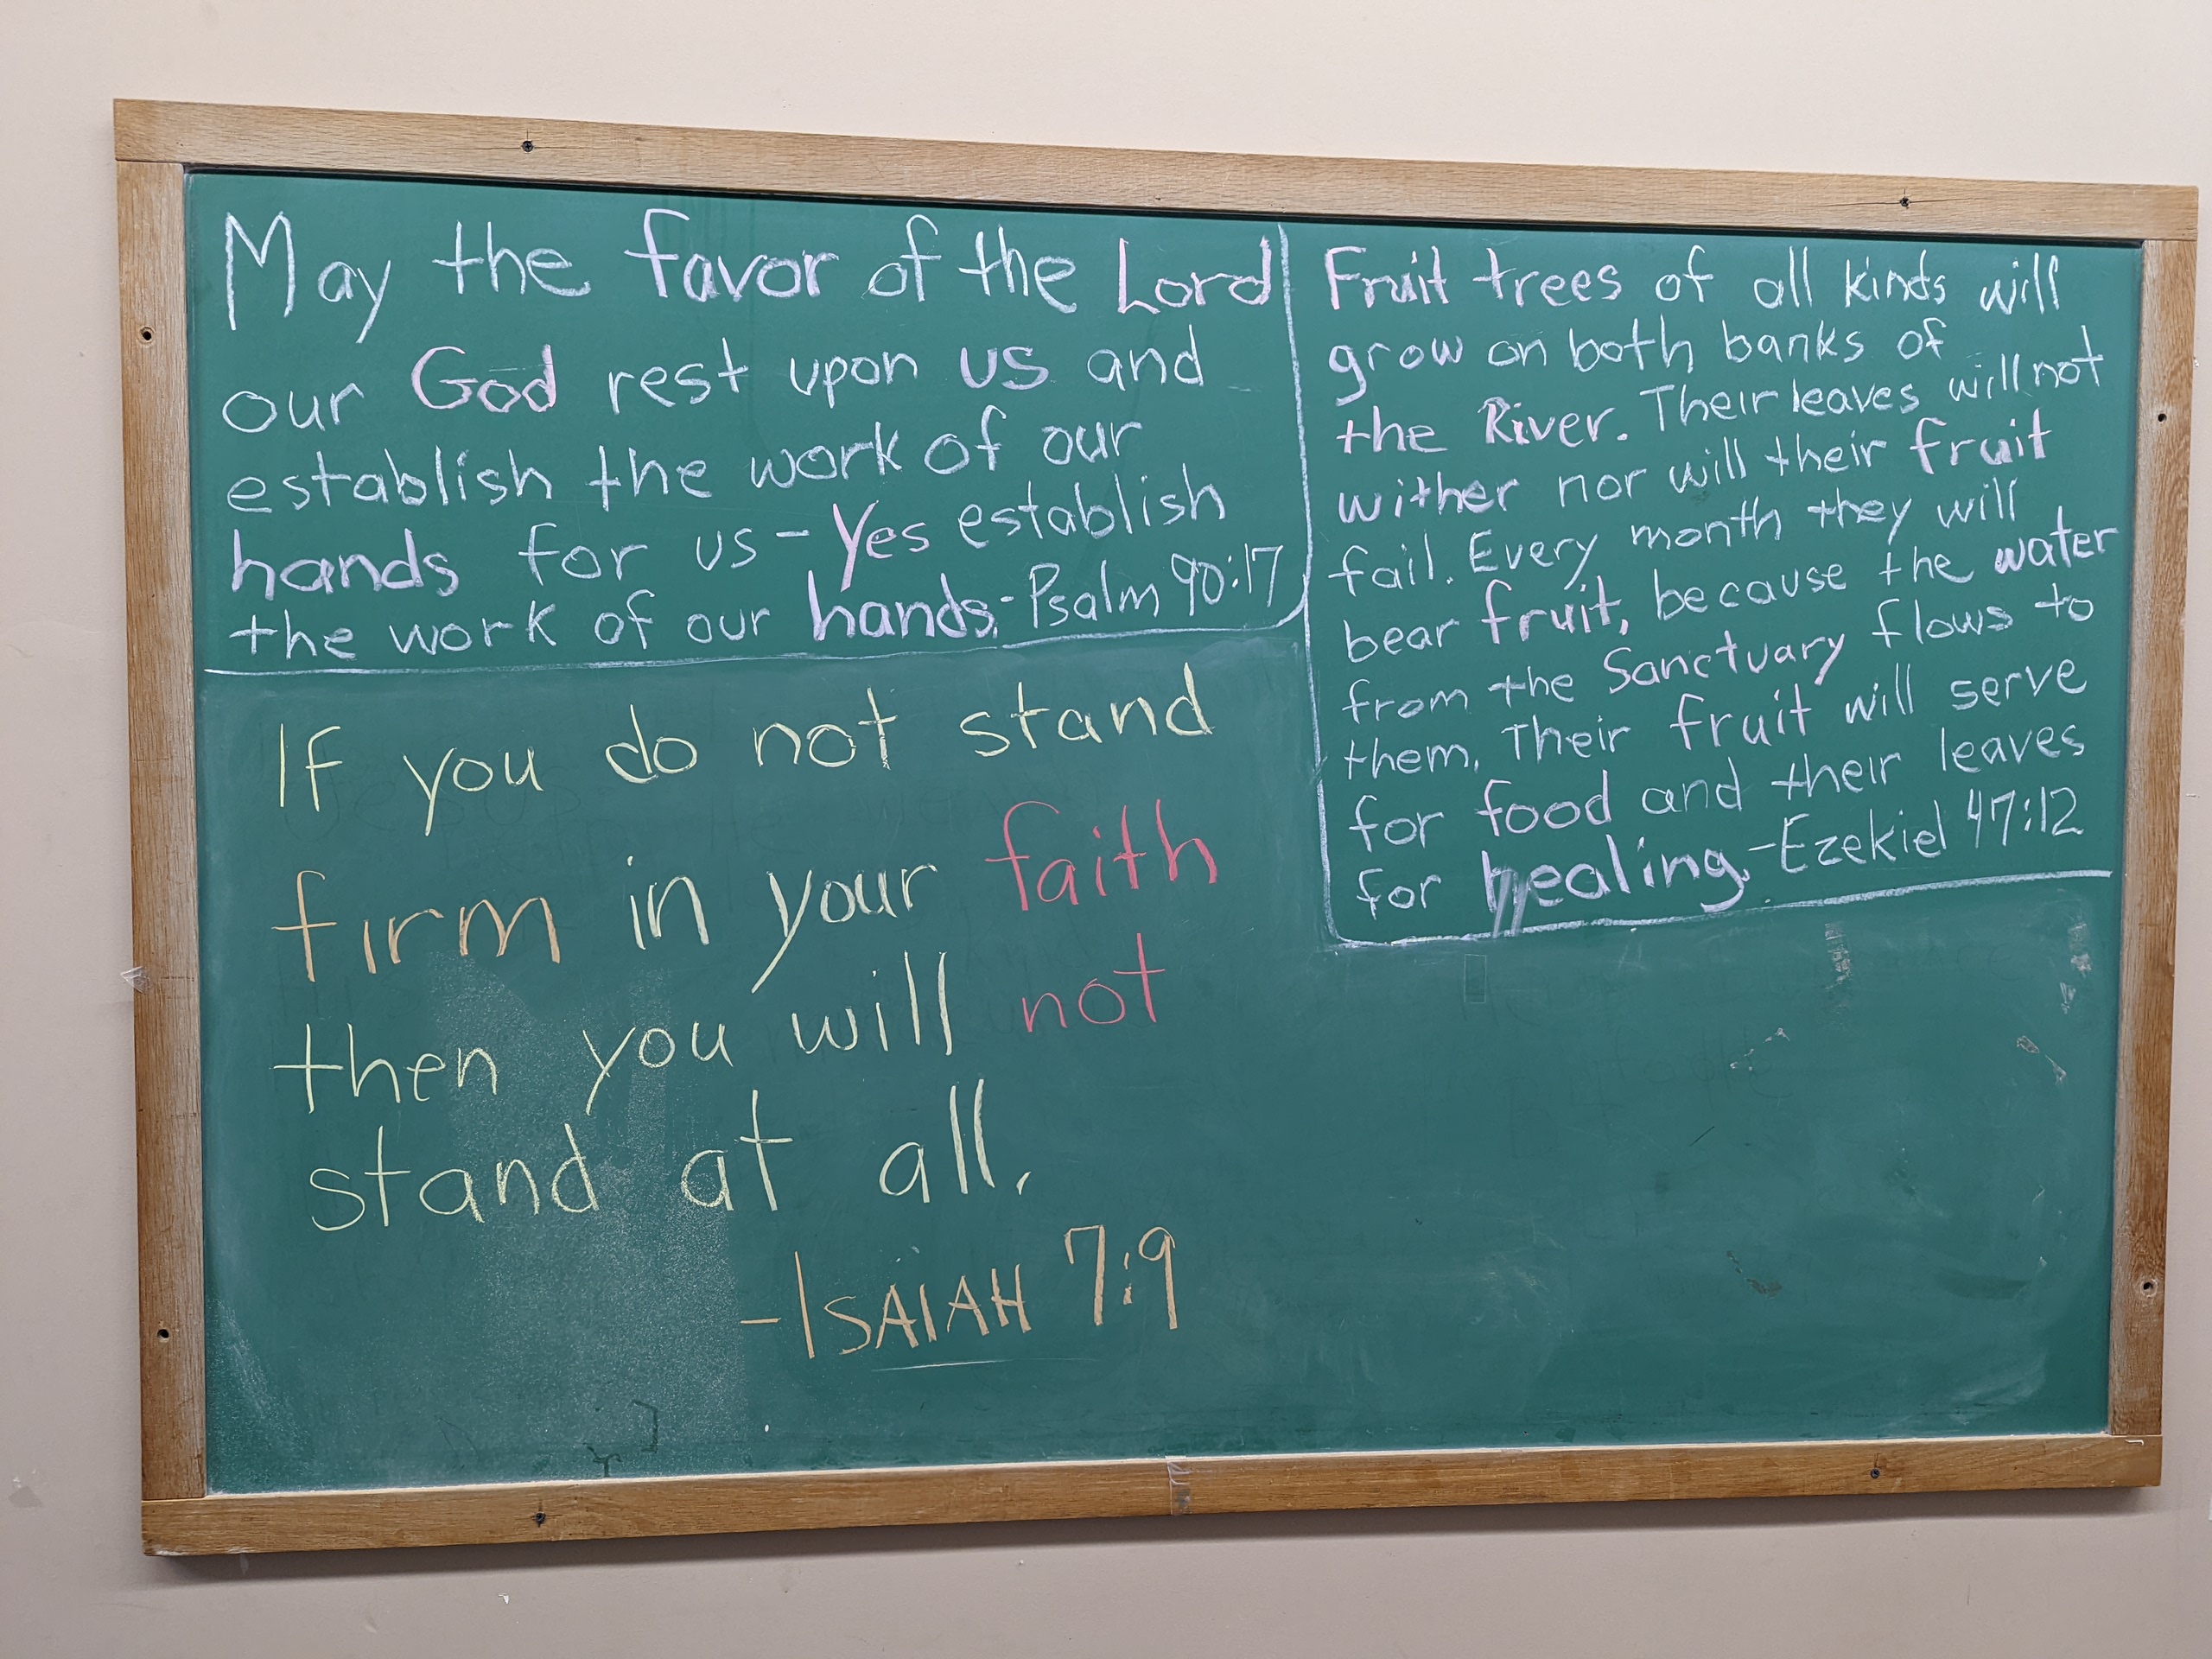 May the favor of the Lord
our God rest upon us and
establish the work of our
hands for us - Yes establish
the work of our hands. - Psalm 90:17
If you do not stand
firm in your faith
then you will not
stand at all.
- ISAIAH 7:9
Fruit trees of all kinds will
grow on both banks of
the River. Their leaves will not
wither nor will their fruit
fail. Every month they will
bear fruit, because the water
from the Sanctuary flows to
them. Their fruit will serve
for food and their leaves
for healing. - Ezekiel 47:12